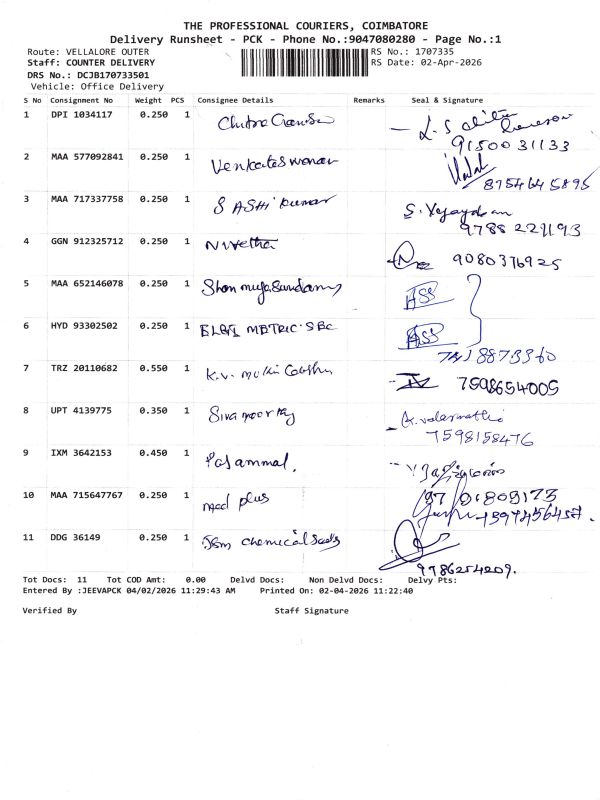 THE PROFESSIONAL COURIERS, COIMBATORE
Delivery Runsheet - PCK - Phone No.:9047080280 - Page No.:1
Route: VELLALORE OUTER RS No.: 1707335
Staff: COUNTER DELIVERY RS Date: 02-Apr-2026
DRS No.: DCJB170733501
Vehicle: Office Delivery
S No Consignment No Weight PCS Consignee Details Remarks Seal & Signature
1 DPI 1034117 0.250 1 Chitra
9150031133
2 MAA 577092841 0.250 1 Venkateswaran
8754645895
3 MAA 717337758 0.250 1 SASHI Kumar
9788221193
4 GGN 912325712 0.250 1 Nivetha 9080376925
5 MAA 652146078 0.250 1 Shanmugasundaram
6 HYD 93302502 0.250 1 ELGI METRIC
7 TRZ 20110682 0.550 1 K.V. 7598654005
8 UPT 4139775 0.350 1 Sivamoorthy
7598158476
9 IXM 3642153 0.450 1
10 MAA 715647767 0.250 1 med plus
11 DDG 36149 0.250 1 chemical
9786254209.
Tot Docs: 11 Tot COD Amt: 0.00 Delvd Docs: Non Delvd Docs: Delvy Pts:
Entered By :JEEVAPCK 04/02/2026 11:29:43 AM Printed On: 02-04-2026 11:22:40
Verified By Staff Signature